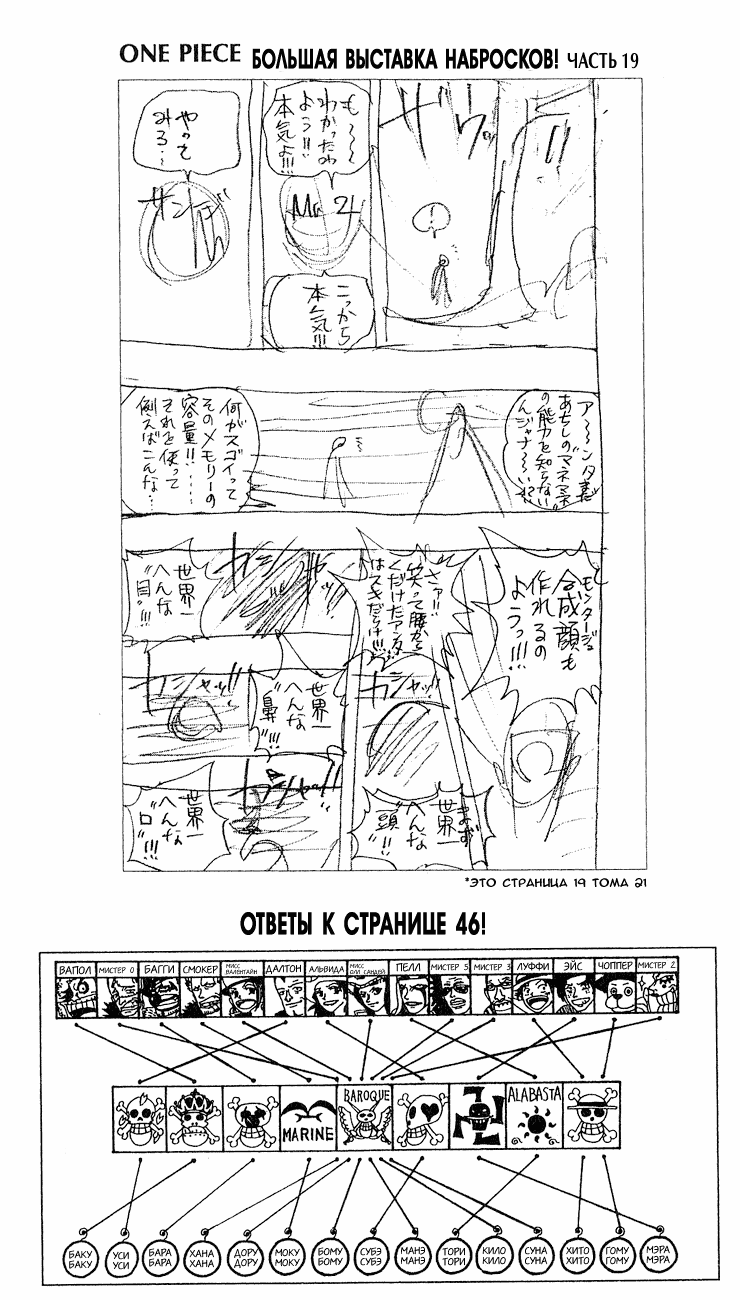 ONE PIECE БОЛЬШАЯ ВЫСТАВКА НАБРОСКОВ! ЧАСТЬ 19
も〜〜
わかったわ
よう!!
本気よ!!!
Mr 2
こっから
本気!!!
やって
みろ…
サンジ
ア〜〜ンタ達
あちしの"マネマネ"
の能力を知らない
んジャナ〜〜い!?
何がスゴイって
そのメモリーの
容量!!……
それを使って
例えばこんな…
モンタージュ
合成顔も
作れるの
ようっ!!!
さァ!!
笑って腰から
くだけたアンタ
はスキだらけ!!!
まず
世界一
へんな
"頭"!!!
カシャッ!!
世界一
へんな
"目"!!!
世界一
へんな
"鼻"!!!
カシャッ!!
世界一
へんな
"口"!!!
*ЭТО СТРАНИЦА 19 ТОМА 21
ОТВЕТЫ К СТРАНИЦЕ 46!
ВАПОЛ МИСТЕР 0 БАГГИ СМОКЕР МИСС ВАЛЕНТАЙН ДАЛТОН АЛЬВИДА МИСС ОЛЛ САНДЕЙ ПЕЛЛ МИСТЕР 5 МИСТЕР 3 ЛУФФИ ЭЙС ЧОППЕР МИСТЕР 2
MARINE BAROQUE ALABASTA
БАКУ БАКУ
УСИ УСИ
БАРА БАРА
ХАНА ХАНА
ДОРУ ДОРУ
МОКУ МОКУ
БОМУ БОМУ
СУБЭ СУБЭ
МАНЭ МАНЭ
ТОРИ ТОРИ
КИЛО КИЛО
СУНА СУНА
ХИТО ХИТО
ГОМУ ГОМУ
МЭРА МЭРА